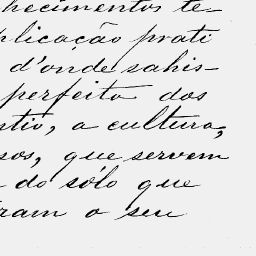 hecimentos te-
plicação prati
d'onde sahis-
perfeito dos
ntio, a cultura,
sos, que servem
do sólo que
ram o seu